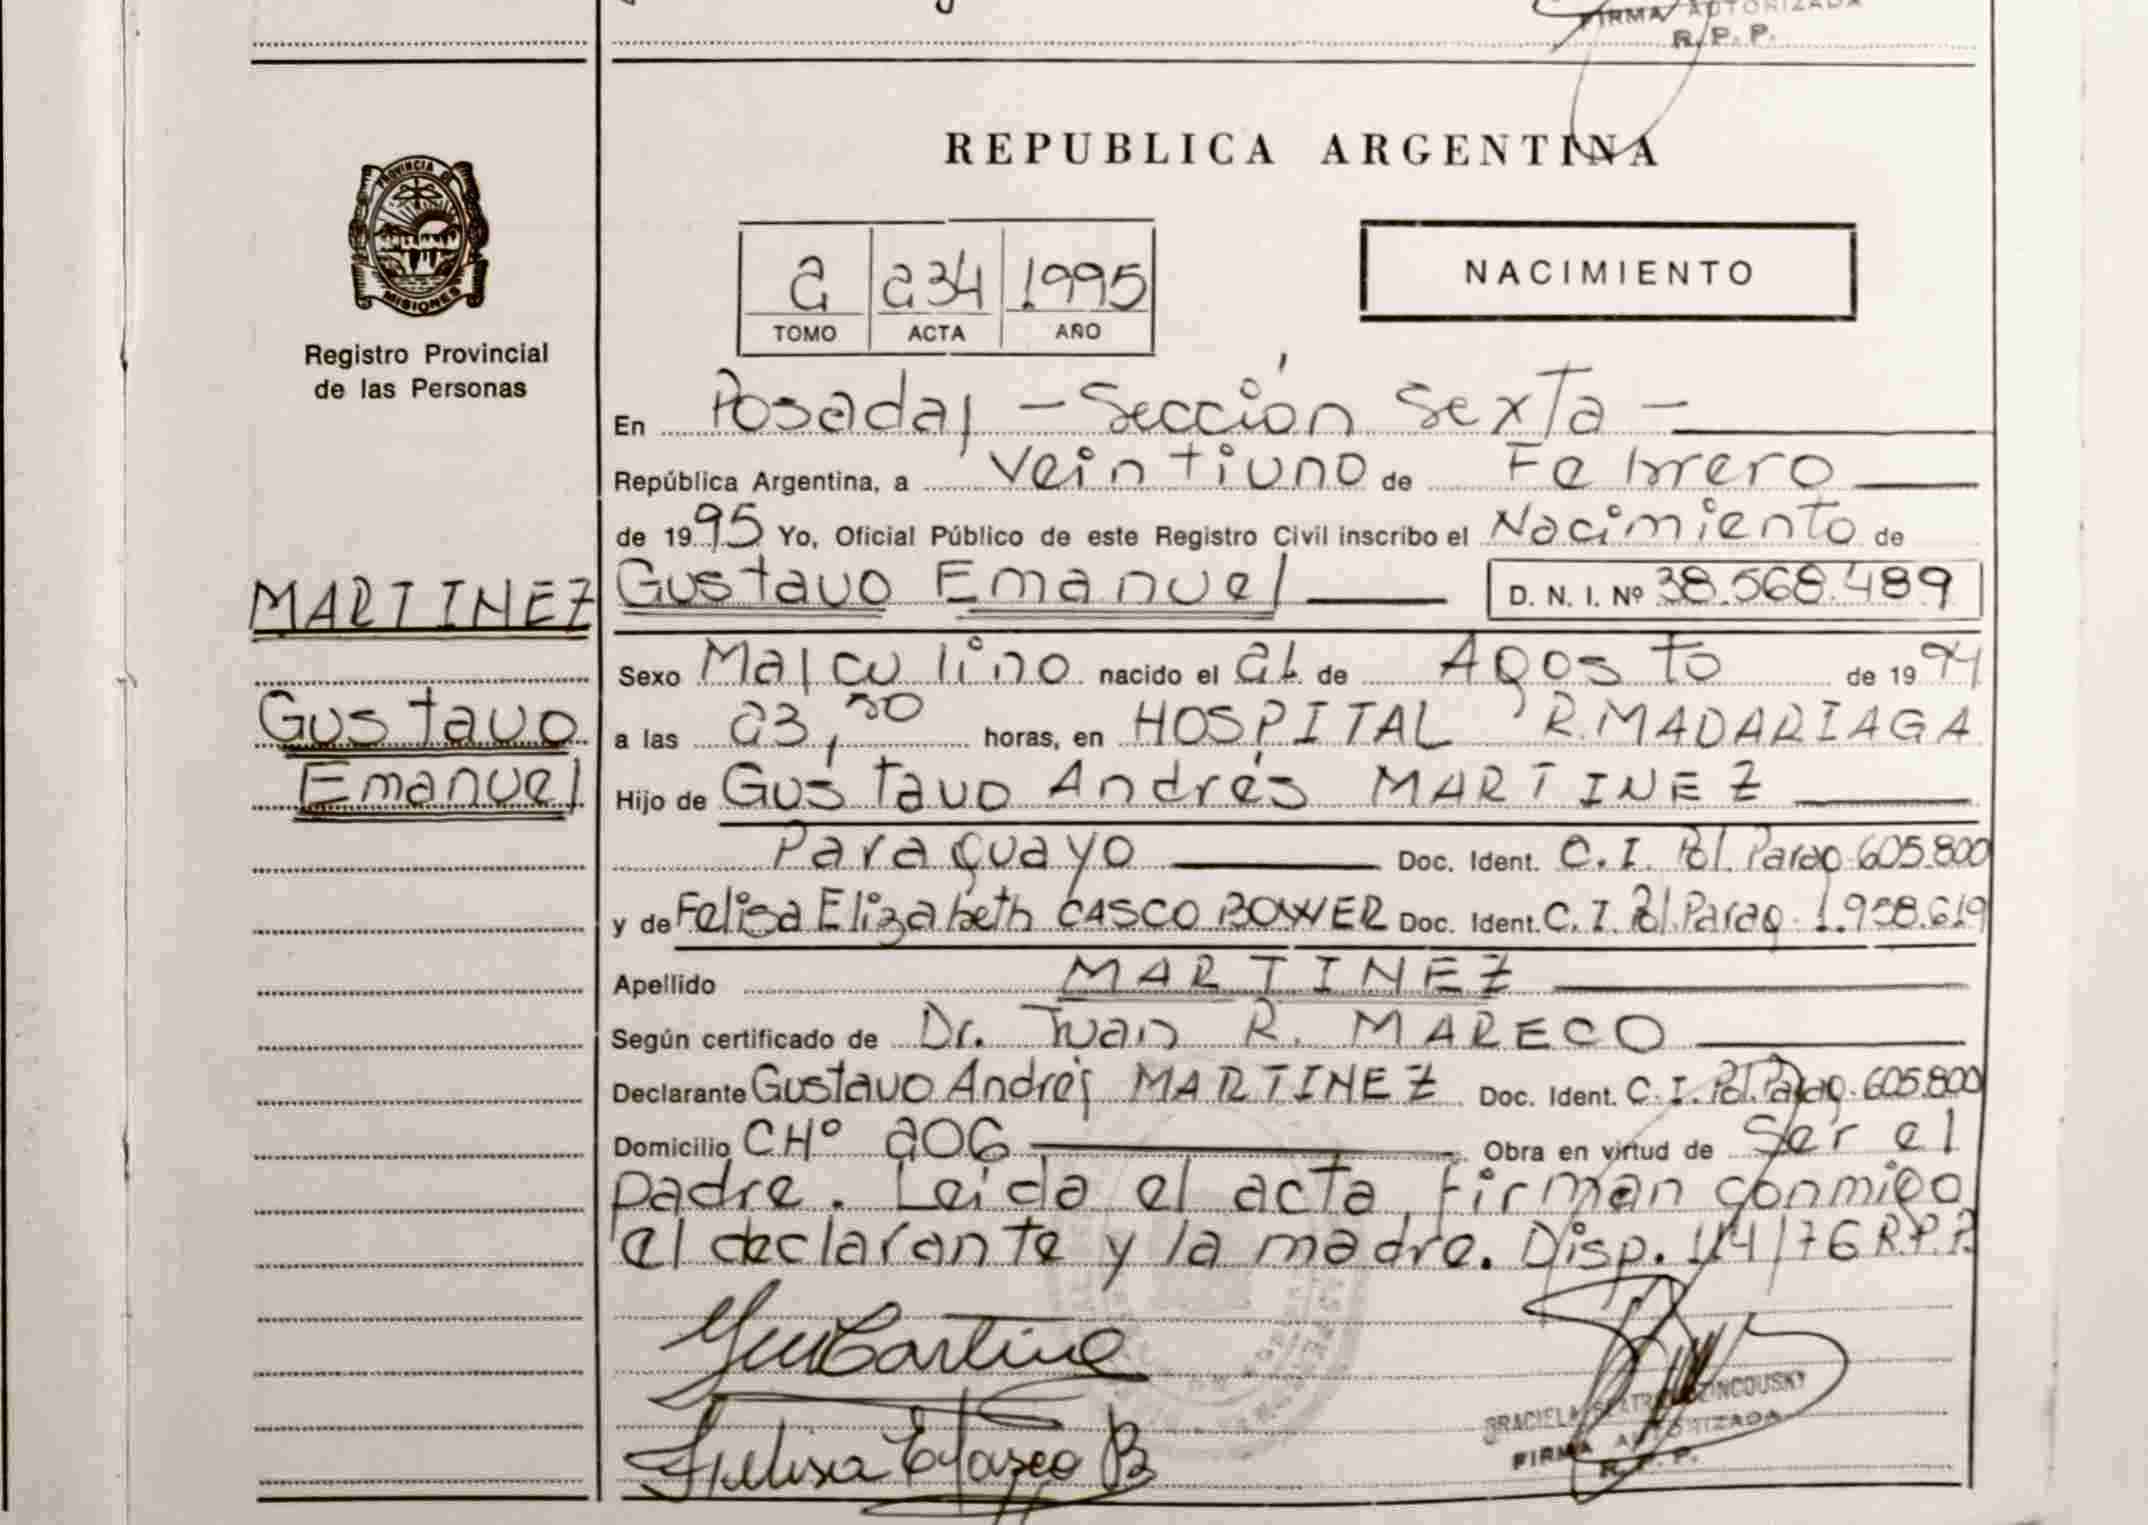 FIRMA AUTORIZADA
R. P. P.
PROVINCIA DE
MISIONES
Registro Provincial
de las Personas
MARTINEZ
Gustavo
Emanuel
REPUBLICA ARGENTINA
2 234 1995
TOMO ACTA AÑO
NACIMIENTO
En Posadas - Sección Sexta -
República Argentina, a Veintiuno de Febrero
de 1995 Yo, Oficial Público de este Registro Civil inscribo el Nacimiento de
Gustavo Emanuel D. N. I. Nº 38.568.489
Sexo Masculino nacido el 21 de Agosto de 1994
a las 23,50 horas, en HOSPITAL R. MADARIAGA
Hijo de Gustavo Andrés MARTINEZ
Paraguayo Doc. Ident. C. I. Pol. Parag. 605.800
y de Felisa Elizabeth CASCO BOWER Doc. Ident. C. I. Pol. Parag. 1.958.619
Apellido MARTINEZ
Según certificado de Dr. Juan R. MARECO
Declarante Gustavo Andrés MARTINEZ Doc. Ident. C. I. Pol. Parag. 605.800
Domicilio CHº 206 Obra en virtud de Ser el
padre. Leida el acta firman conmigo
el declarante y la madre. Disp. 114/76 R.P.P.
GRACIELA
FIRMA AUTORIZADA
R. P. P.